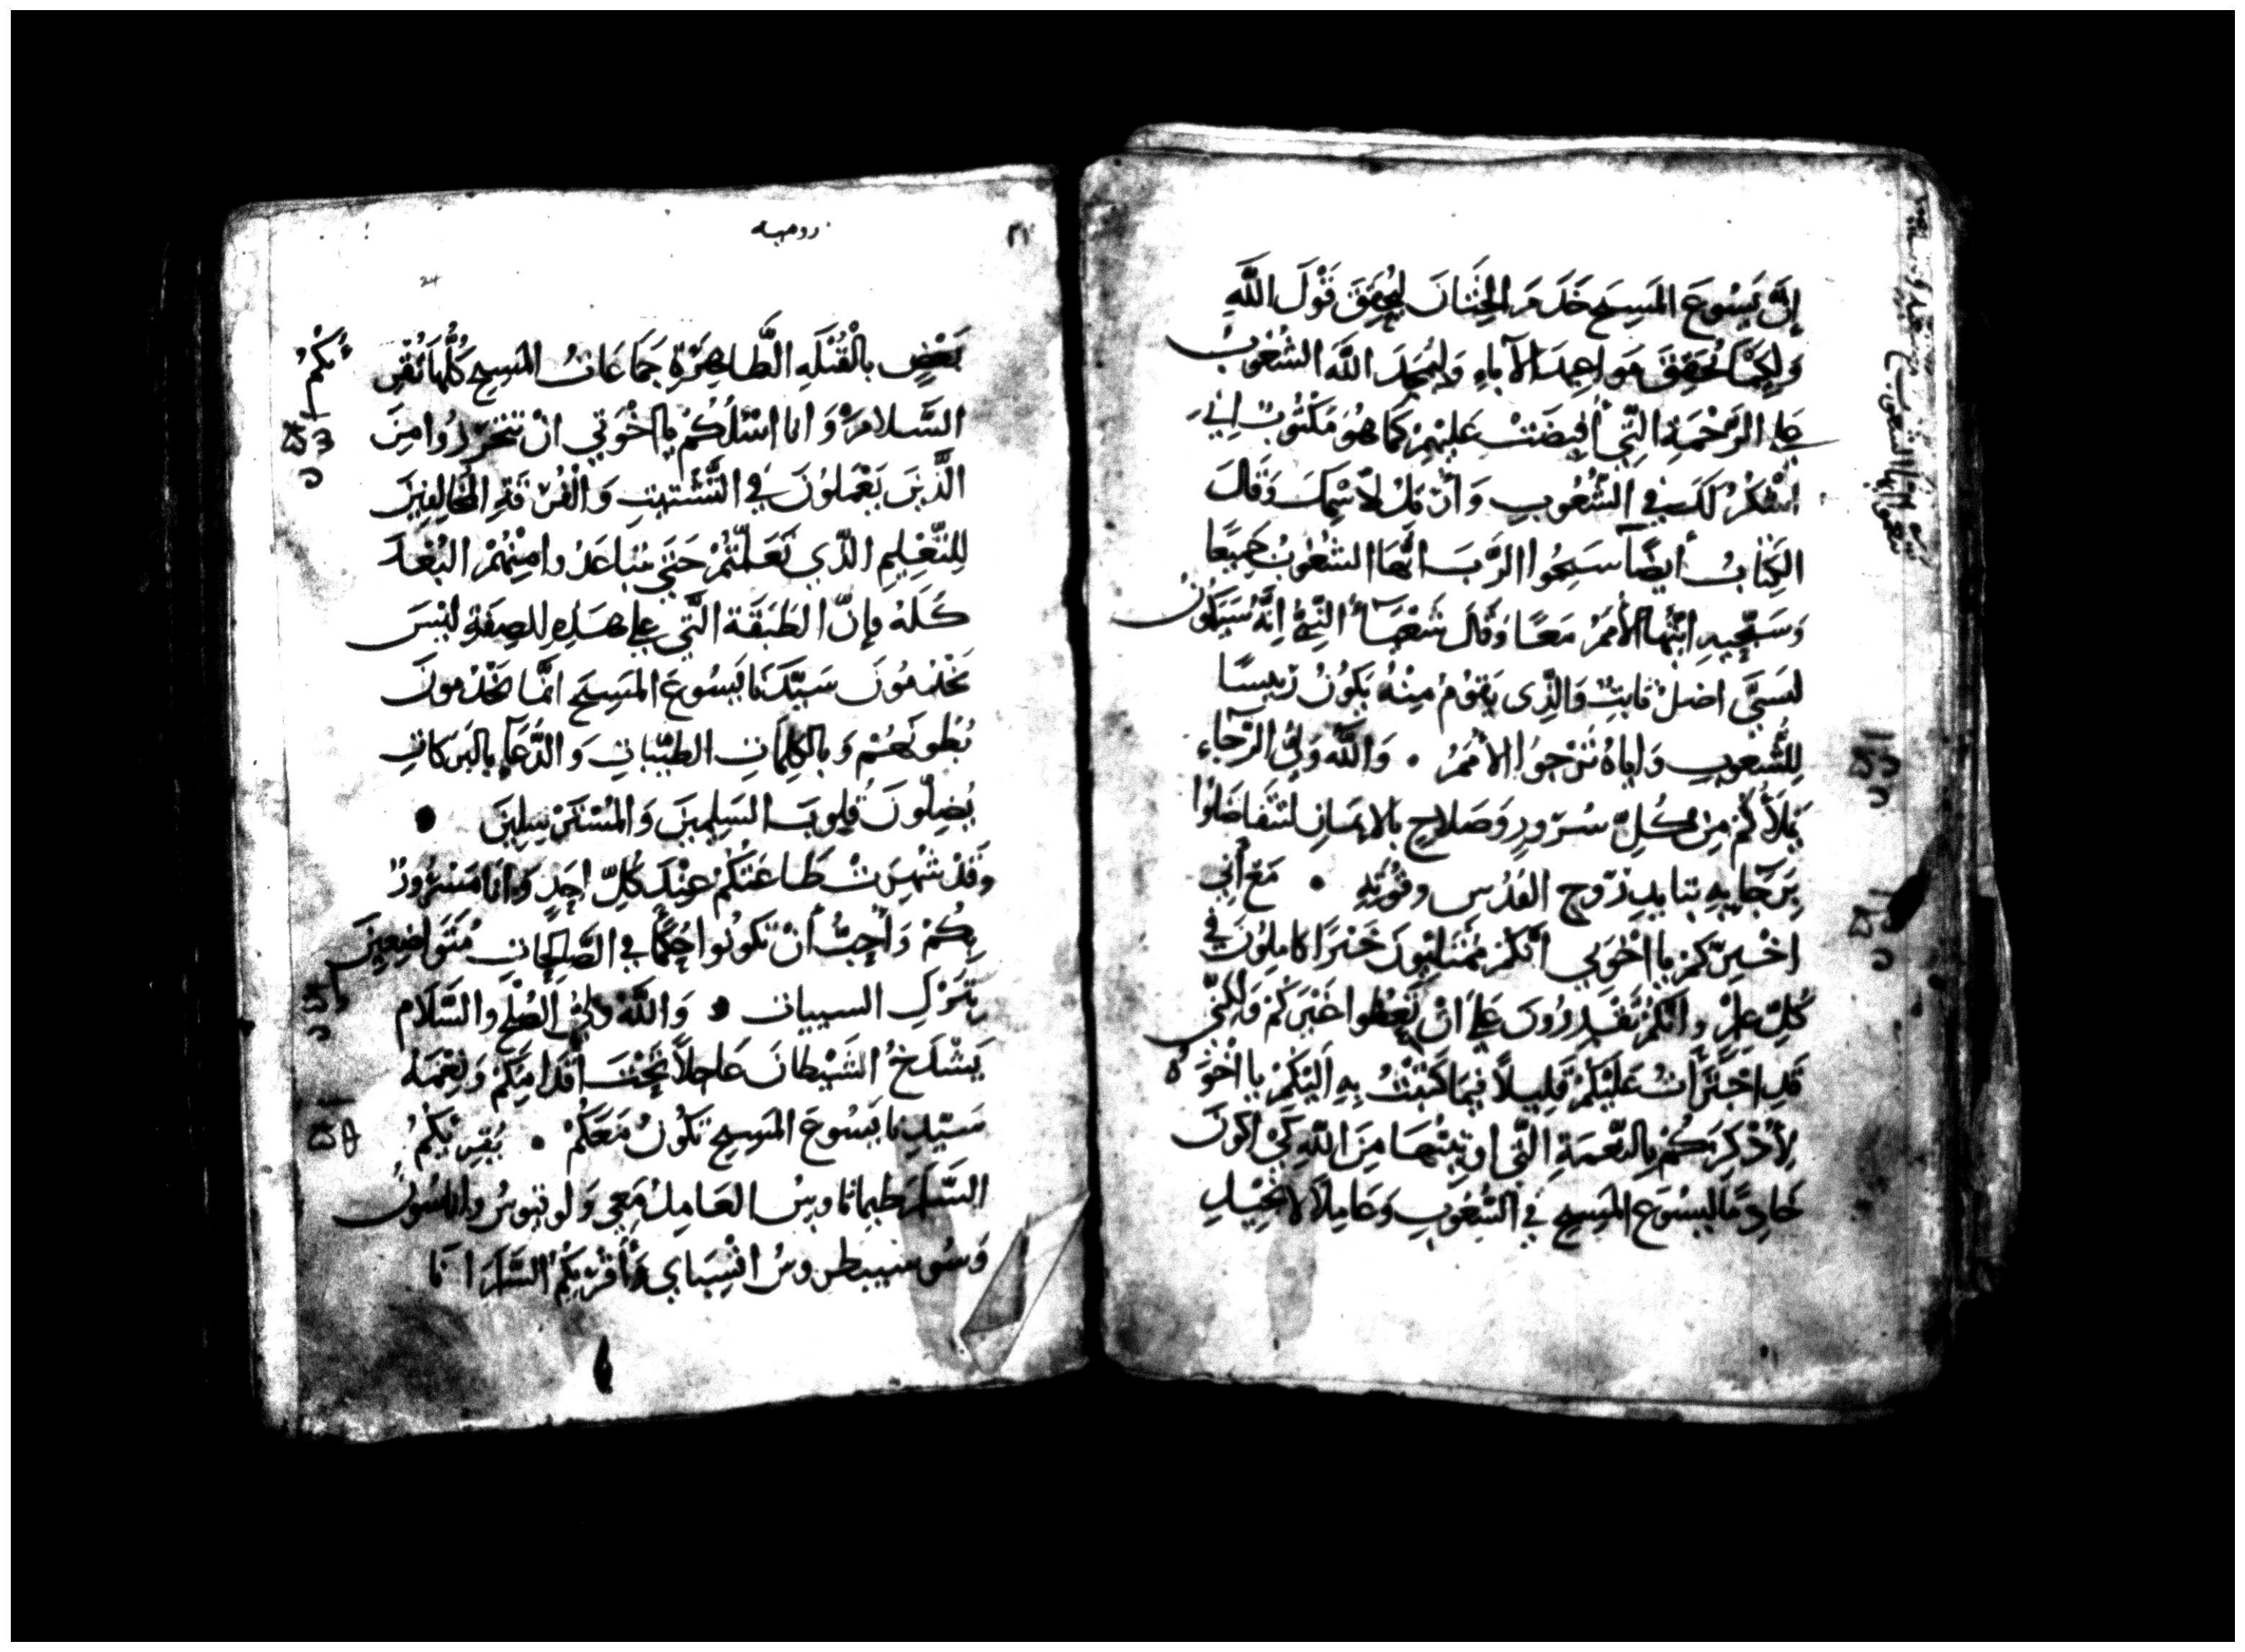 إنَّ يَسُوعَ المَسِيحِ خَدَمَ الخِتَانَ ليُحِقِقَ قَوْلَ اللَّهِ
وَلِكَيْمَا يُحَقِقَ مَواعِيدَ الآبَاءِ وَليُمَجِدَ اللَّهَ الشُعُوبُ
عَلي الرَّحْمَةِ الَّتِي أُفِيضَتْ عَليْهِمْ كَمَا هُوَ مَكْتُوبٌ إنِي
اشْكُرُ لَكَ فِي الشُعُوبِ وَأُرَتِلُ لاسْمِكَ وَقَالَ
الكِتَابُ أيضًا سَبِحُوا الرَّبَ ايُّهَا الشُعُوبُ جَمِيعًا
وَسَبِّحِيهِ ايَّتُهَا الأُمَمُ مَعًا وَقَالَ شَعْيَا النَّبِيُّ انَّهُ سَيَكُونُ
لِيَسَّي اصْلٌ ثَابِتٌ وَالَّذِي يَقُومُ مِنْهُ يَكُونُ رَئِيسًا
لِلشُّعوبِ وَايَاهُ تَرْجُوا الأُمَمُ • وَاللَّهُ وَلِيُّ الرَّجَاءِ
يَمْلأُكُمْ مِنْ كُلِّ سُرُورٍ وَصَلاحٍ بالايمَانِ لتَتَفَاضَلُوا
بِرَجَايِهِ بتايِيدِ رُوحِ القُدُسِ وقُوَّتِهِ • مَعَ أنِّي
اخْبِرُكُمْ يا اخْوَتِي أنَّكُمْ مُمْتَلِيُونَ خَيْرًا كامِلُونَ فِي
كُلِّ عِلْمٍ وانَّكُمْ تَقْدِرُونَ عَلي انْ تَعِظُوا غَيْرَكُمْ وَلَكِنِّي
قَدِ اجْتَرَأتُ عَلَيْكُمْ قَلِيلاً فِيمَا كَتَبْتُ بِهِ الَيْكُمْ يا اخْوَه
لأُذْكِرَكُمْ بالنِّعْمَةِ الَّتِي اوتِيتُهَا مِنَ اللَّهِ كَيْ اكونَ
خَادِمًا ليَسُوعَ المَسِيحِ فِي الشُعُوبِ وَعَامِلاً لانْجِيلِ
روميه
24
بَعْضٍ بالْقُبْلَهِ الطَّاهِرَةِ جَمَاعَاتُ المَسِيحِ كُلُّهَا تُقْرِئكُمْ
السَّلامَ وَانا اسْئلُكُمْ يا اخْوَتِي انْ تَتَحَرَّزُوا مِنَ
الَّذِينَ يَعْمَلُونَ فِي التَّشْتِيتِ وَالْفُرْقَةِ المُخَالِفِينَ
لِلتَّعْلِيمِ الَّذِي تَعَلَّمْتُمْ حَتَّي تتباعَدُوا مِنْهُمْ البُعْدَ
كُلَّهُ فإنَّ الطَبَقَة الَّتِي عَلي هَذِهِ الصِفَةِ ليْسَ
يَخْدمُونَ سَيِّدَنَا يَسُوعَ المَسِيحِ انَّمَا يَخْدمونَ
بُطُونَهُمْ وَبالكِلِمَاتِ الطيِّبَاتِ وَالدُّعَآءِ بالبَرَكَاتِ
يُضِلُّونَ قُلوبَ السَلِيمِينَ وَالمُسْتَرْسِلِينَ •
وَقَدْ شُهِرَتْ طَاعَتُكُمْ عِنْدَ كُلِّ احَدٍ وَانَا مَسْرُورٌ
بِكُمْ وَأُحِبُّ أنْ تَكُونُوا حُكَمَآ فِي الصَّالِحَاتِ مُتَوَاضِعِينَ
بتَرْكِ السيياتِ • وَاللَّهُ وَلِيُّ الصُلْحِ وَالسَّلَامِ
يَشْدَخُ الشَيْطَانَ عَاجلاً تَحْتَ اقْدَامِكُمْ وَنِعْمَه
سَيِّدِنا يَسُوعَ المَسِيحِ تَكُونُ مَعَكُمْ • يُقْرِيكُمُ
السَّلَامَ طيماثاوسُ العَامِلُ مَعِي وَلوقيوسُ واياسُونُ
وَسُوسيبطروسُ انْسِبَاي وَأُقْرِيكُمُ السَّلَامَ انَا